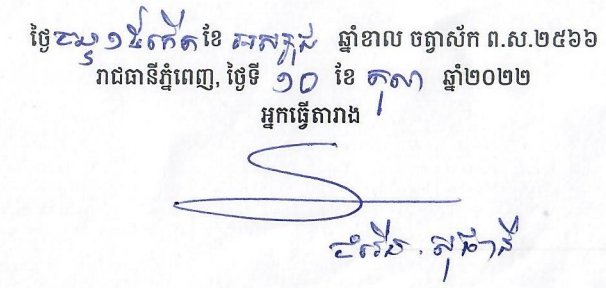 ថ្ងៃចន្ទ ១៥កើត ខែ អស្សុជ ឆ្នាំខាល ចត្វាស័ក ព.ស.២៥៦៦
រាជធានីភ្នំពេញ, ថ្ងៃទី ១០ ខែ តុលា ឆ្នាំ២០២២
អ្នកធ្វើតារាង
ចំរើន